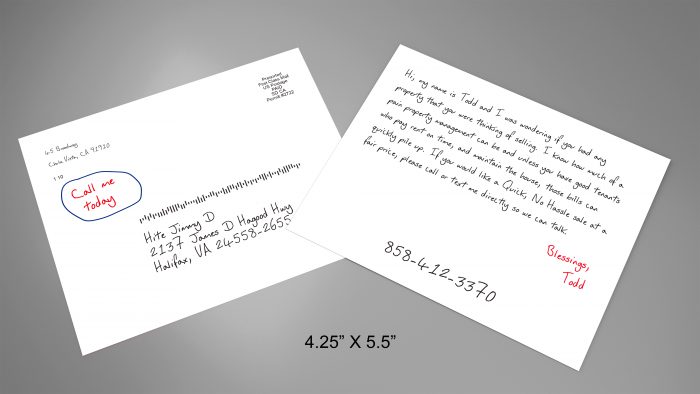 Presorted
First Class Mail
US Postage
PAID
SD CA
Permit #2732
45 Broadway
Chula Vista, CA 91910
1 10
Call me
today
Hite Jimmy D
2137 James D Hagood Hwy
Halifax, VA 24558-2655
Hi, my name is Todd and I was wondering if you had any
property that you were thinking of selling. I know how much of a
pain property management can be and unless you have good tenants
who pay rent on time, and maintain the house, those bills can
quickly pile up. If you would like a Quick, No Hassle sale at a
fair price, please call or text me directly so we can talk.
Blessings,
Todd
858-412-3370
4.25” X 5.5”